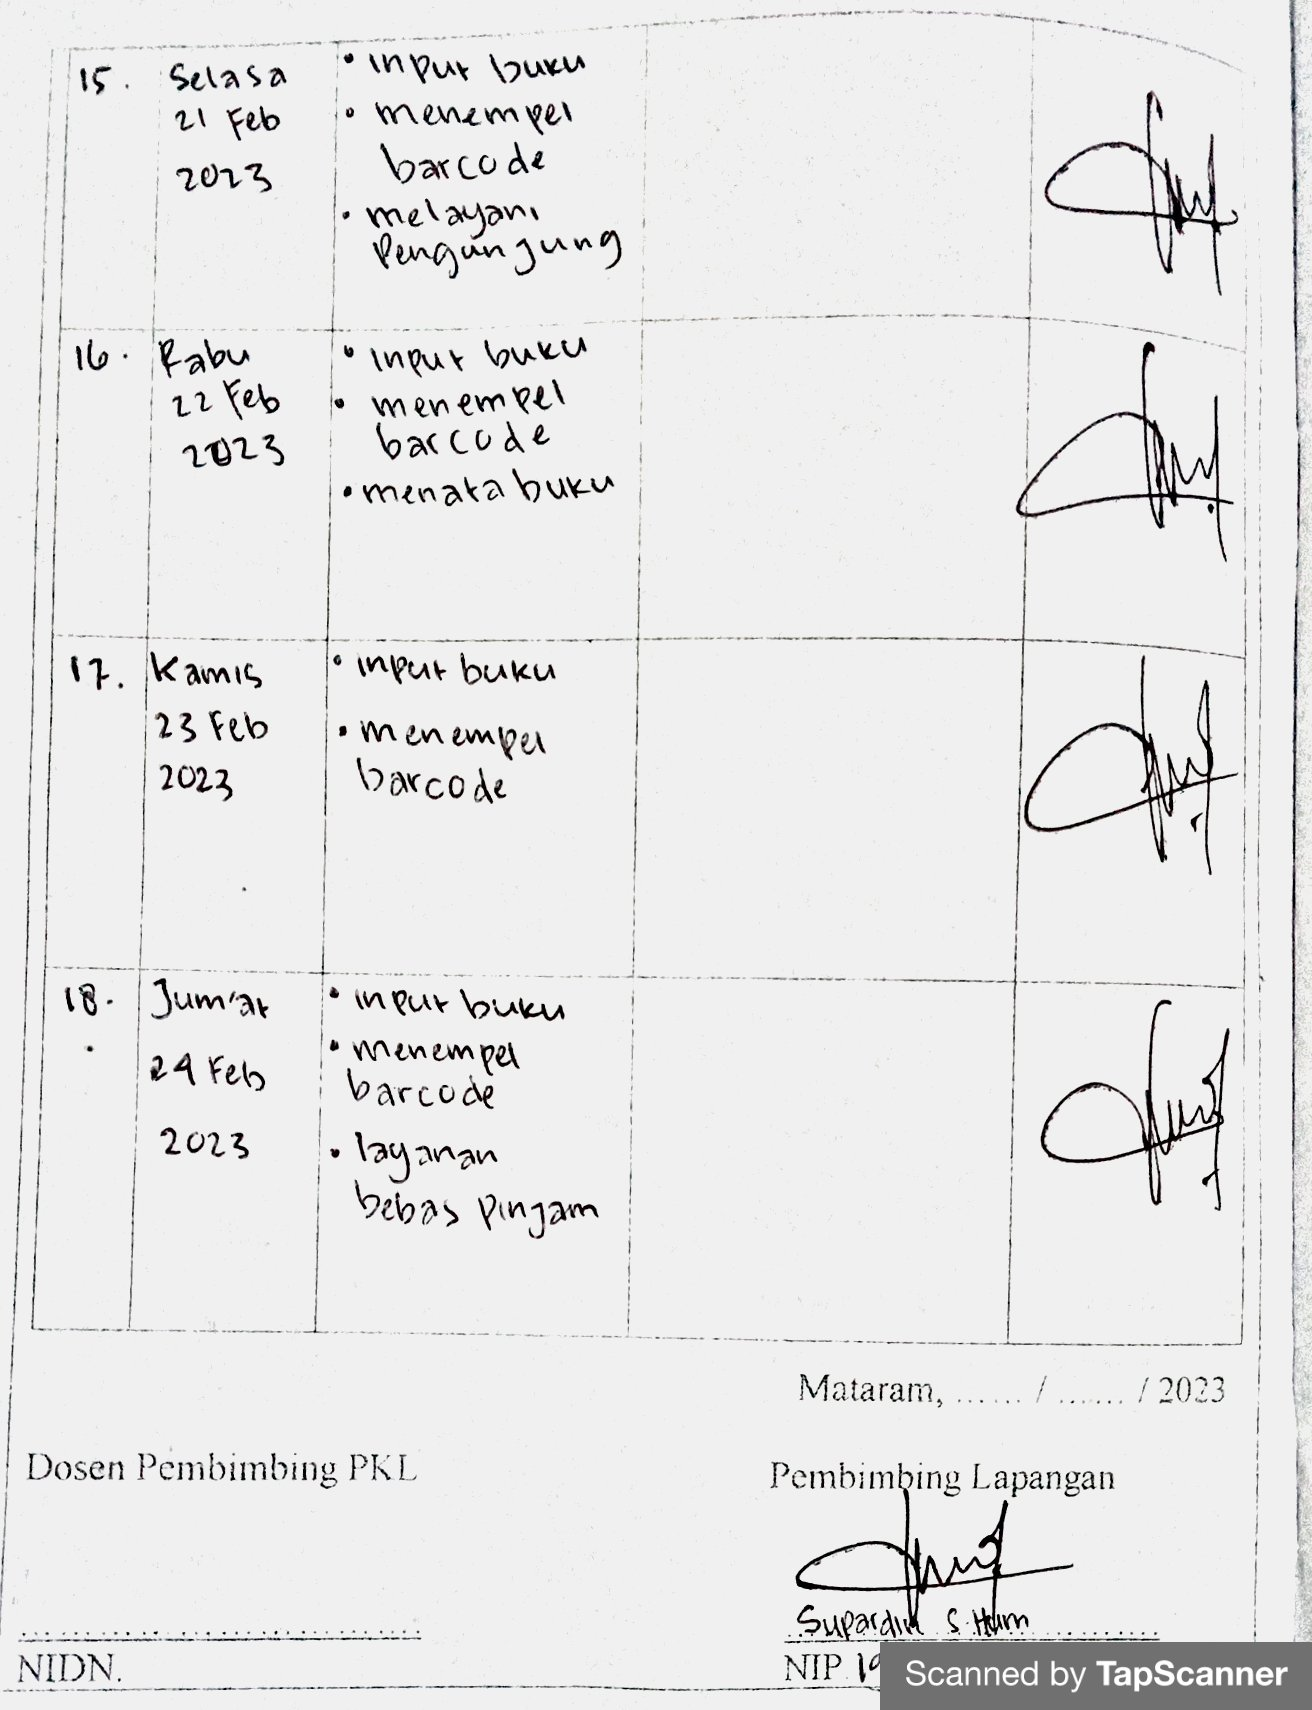 15. Selasa
21 Feb
2023
• input buku
• menempel
barcode
• melayani
Pengunjung
16. Rabu
22 Feb
2023
• input buku
• menempel
barcode
• menata buku
17. Kamis
23 Feb
2023
• input buku
• menempel
barcode
18. Jum'at
24 Feb
2023
• input buku
• menempel
barcode
• layanan
bebas pinjam
Mataram, ...... / ....... / 2023
Dosen Pembimbing PKL
Pembimbing Lapangan
Supardin S.Hum
NIDN.
NIP 19
Scanned by TapScanner